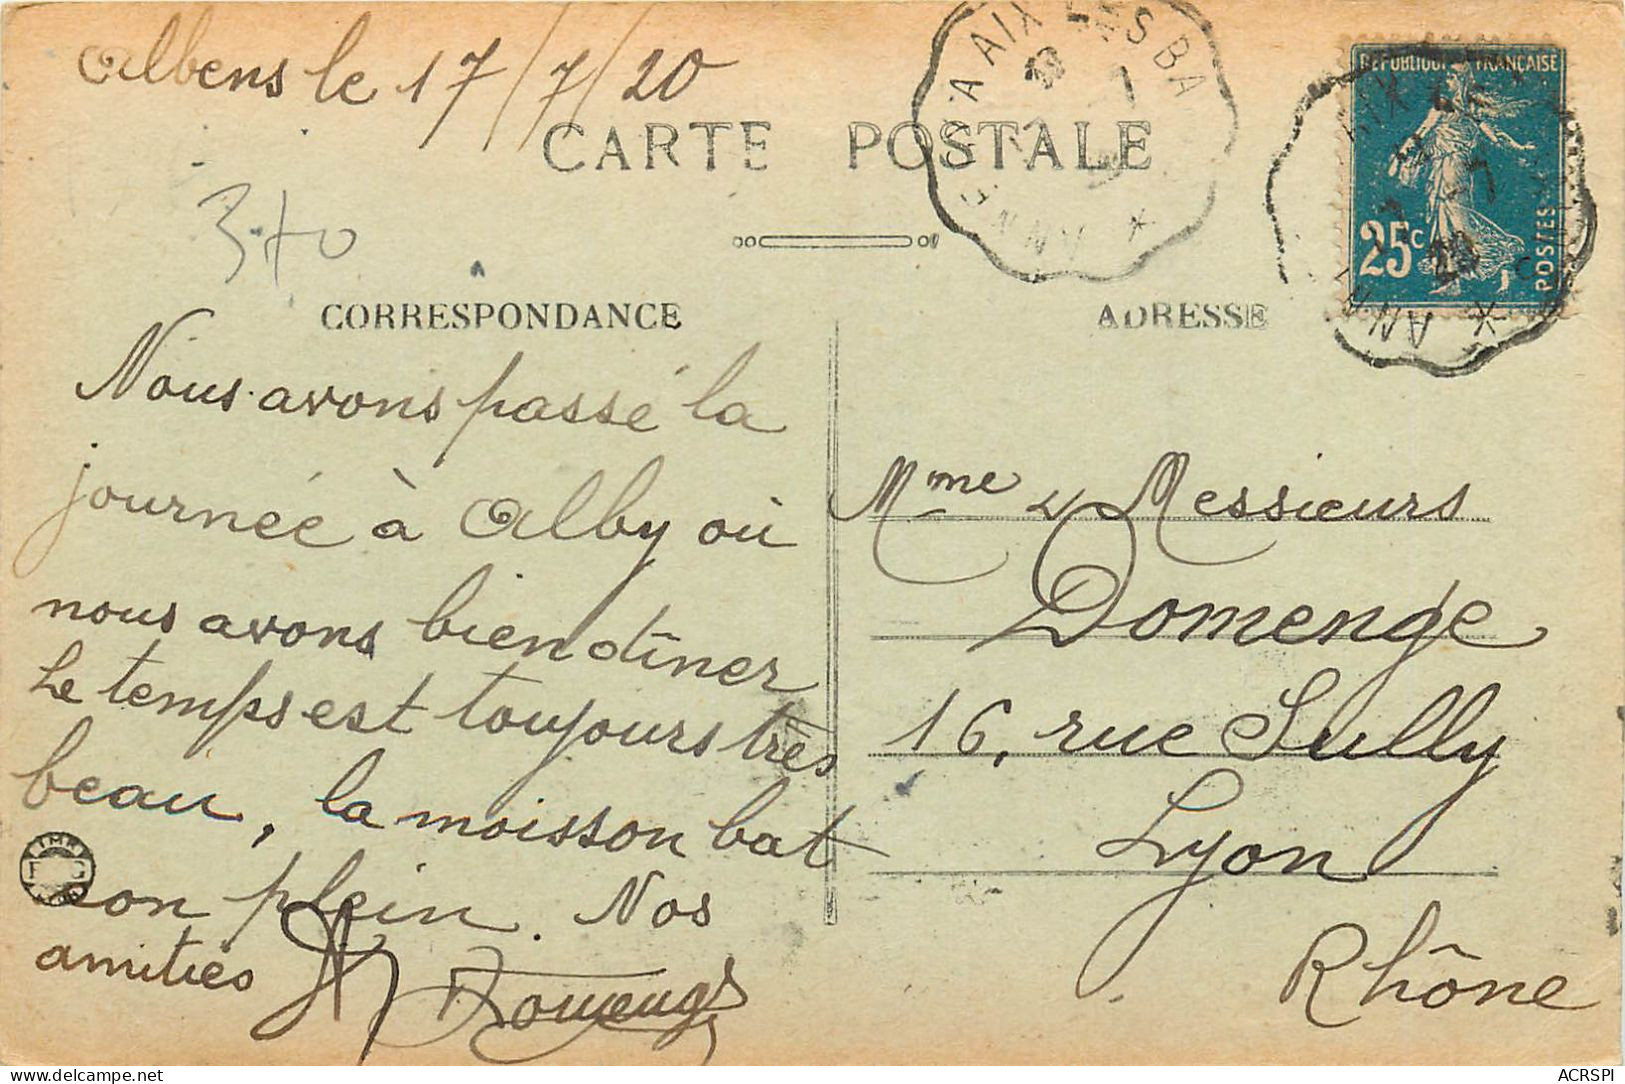 Albens le 17/7/20
CARTE POSTALE
370
CORRESPONDANCE
Nous avons passé la
journée à Alby où
nous avons bien dîner
Le temps est toujours très
beau, la moisson bat
son plein. Nos
amitiés Domenge
ADRESSE
Mme & Messieurs
Domenge
16, rue Sully
Lyon
Rhône
REPUBLIQUE FRANÇAISE
25c
POSTES
A AIX LES BA
ANNE
ACRSPI